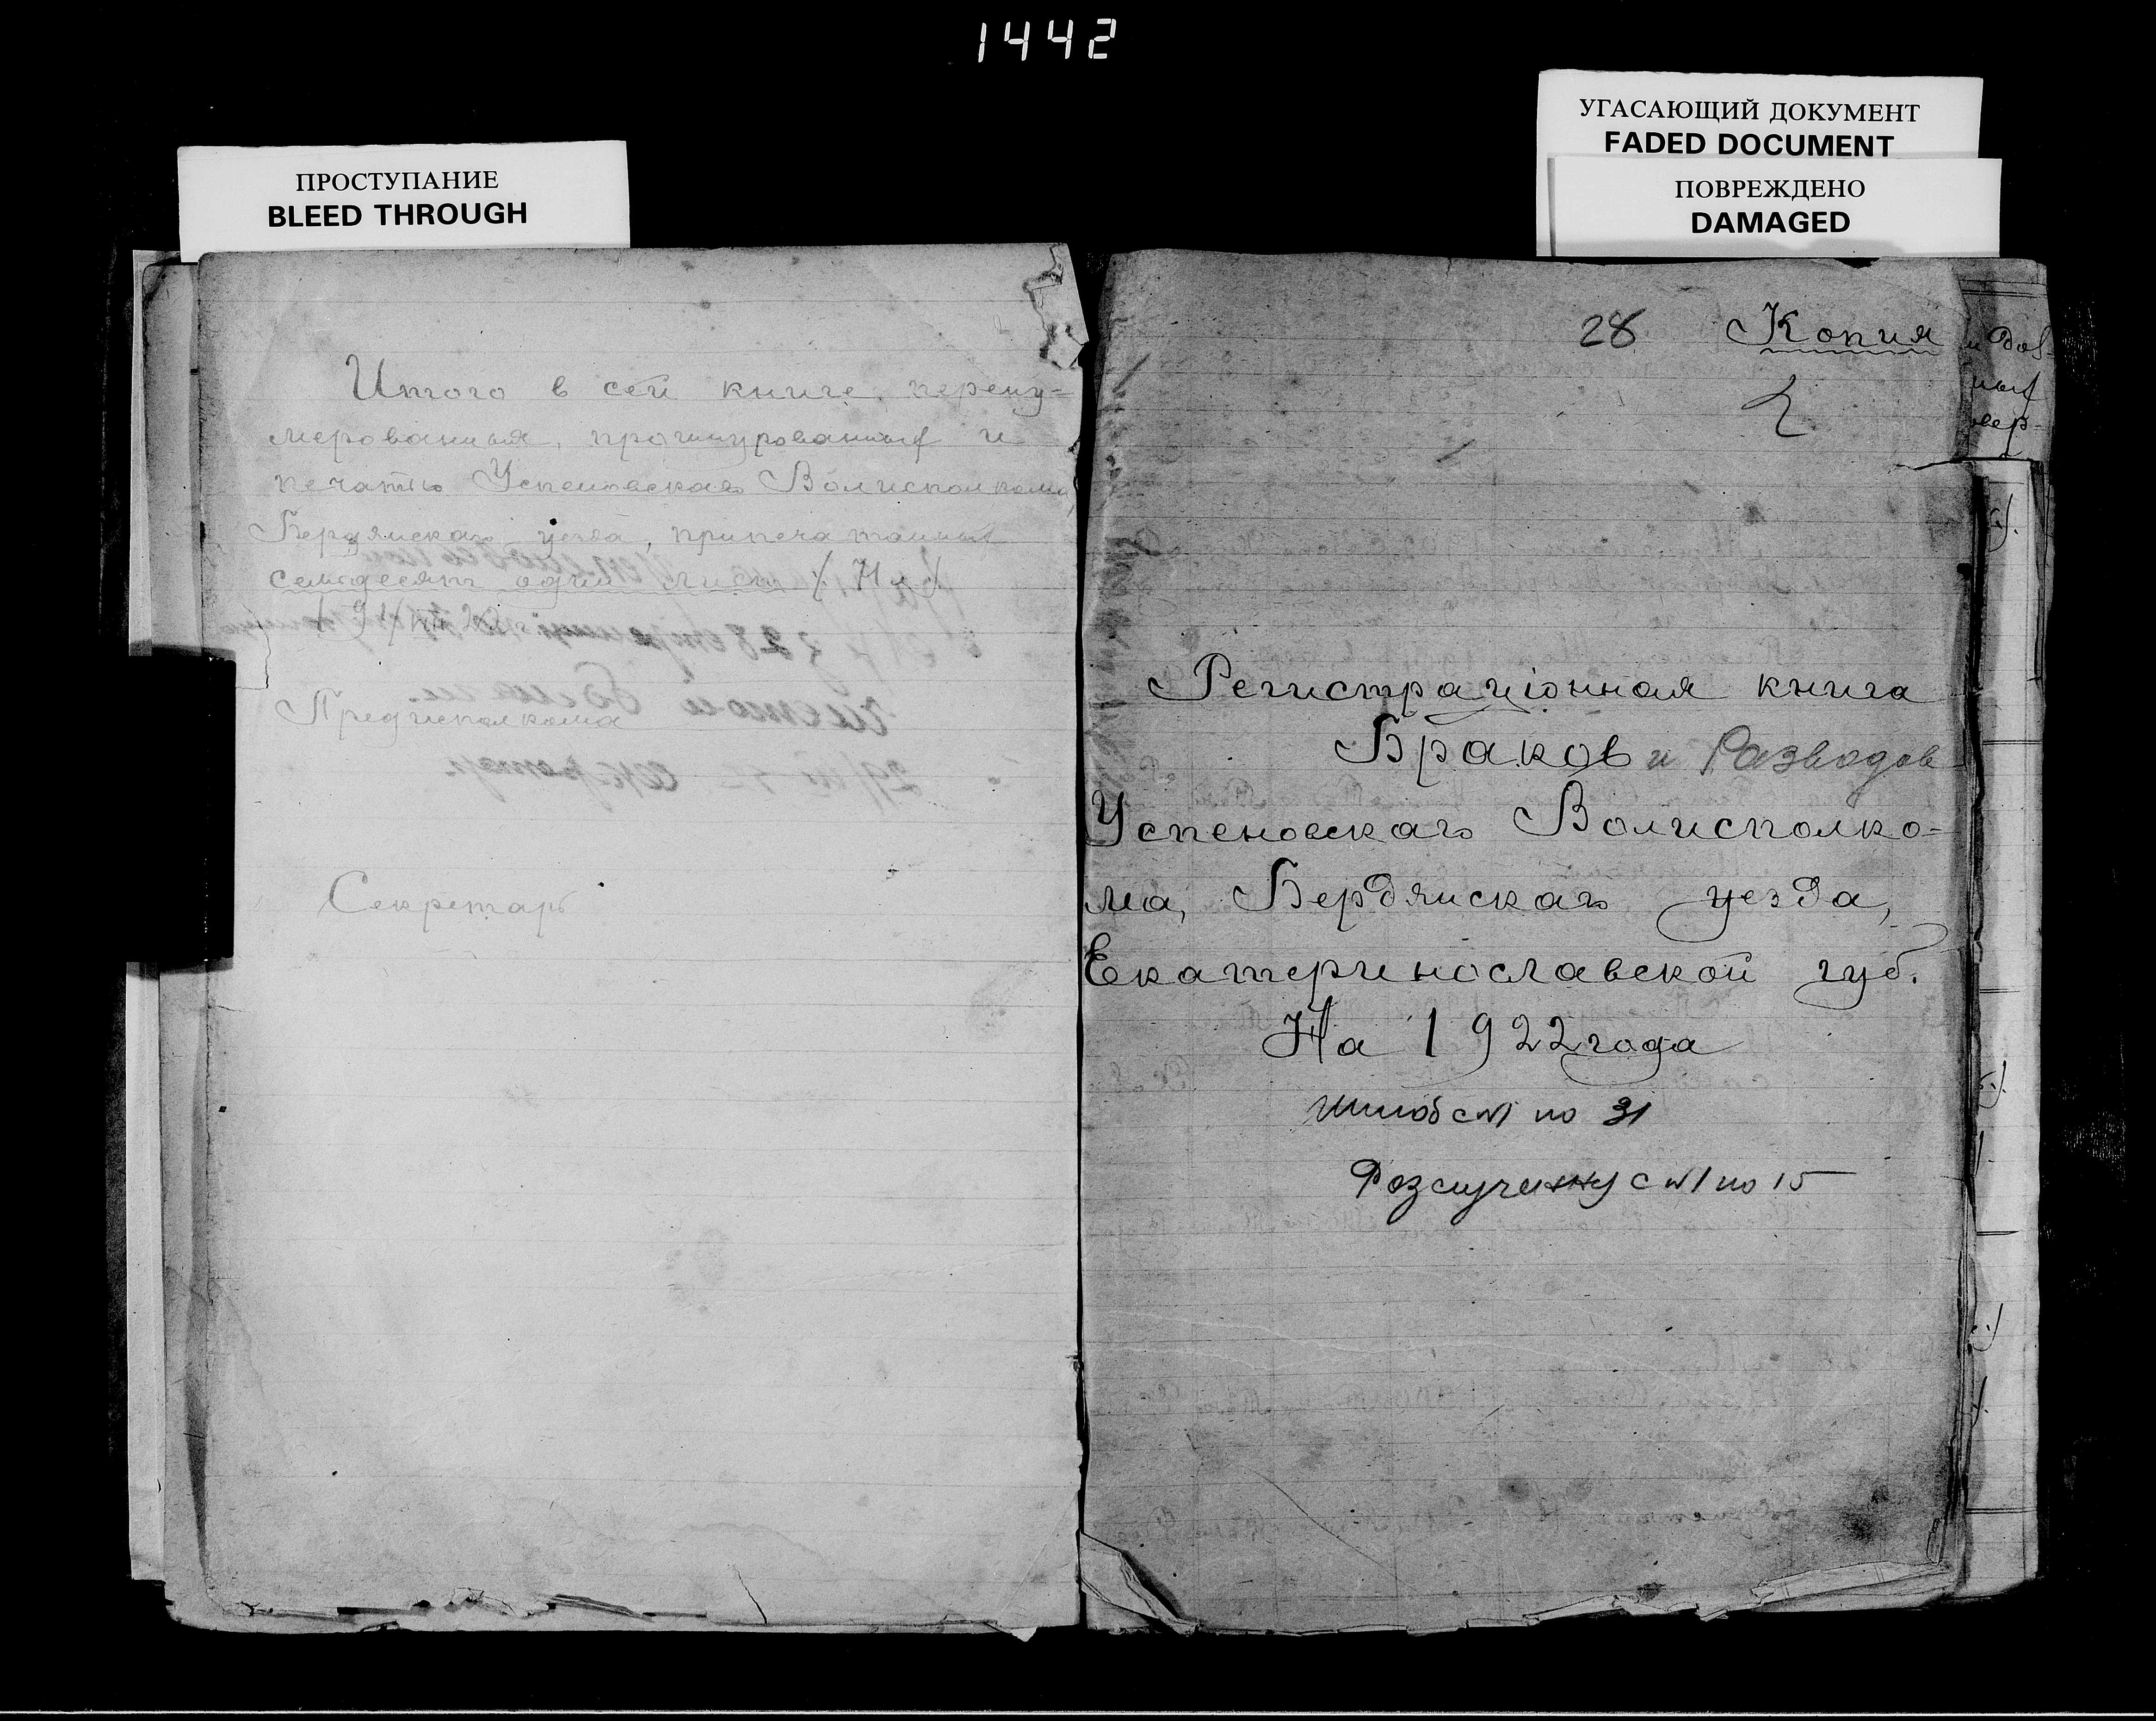 1442
ПРОСТУПАНИЕ
BLEED THROUGH
УГАСАЮЩИЙ ДОКУМЕНТ
FADED DOCUMENT
ПОВРЕЖДЕНО
DAMAGED
Итого в сей книге перену-
мерованных, прошнурованных и
печатью Успеновскаго Волисполкома,
Бердянскаго уезда, припечатанных
семьдесят один лист / 71 л /
Предисполкома
Секретарь
28 Копия
Регистраціонная книга
Браков и Разводов
Успеновскаго Волисполко-
ма, Бердянскаго уезда,
Екатеринославской губ.
На 1922 года
Шлюб с №1 по 31
с №1 по 15